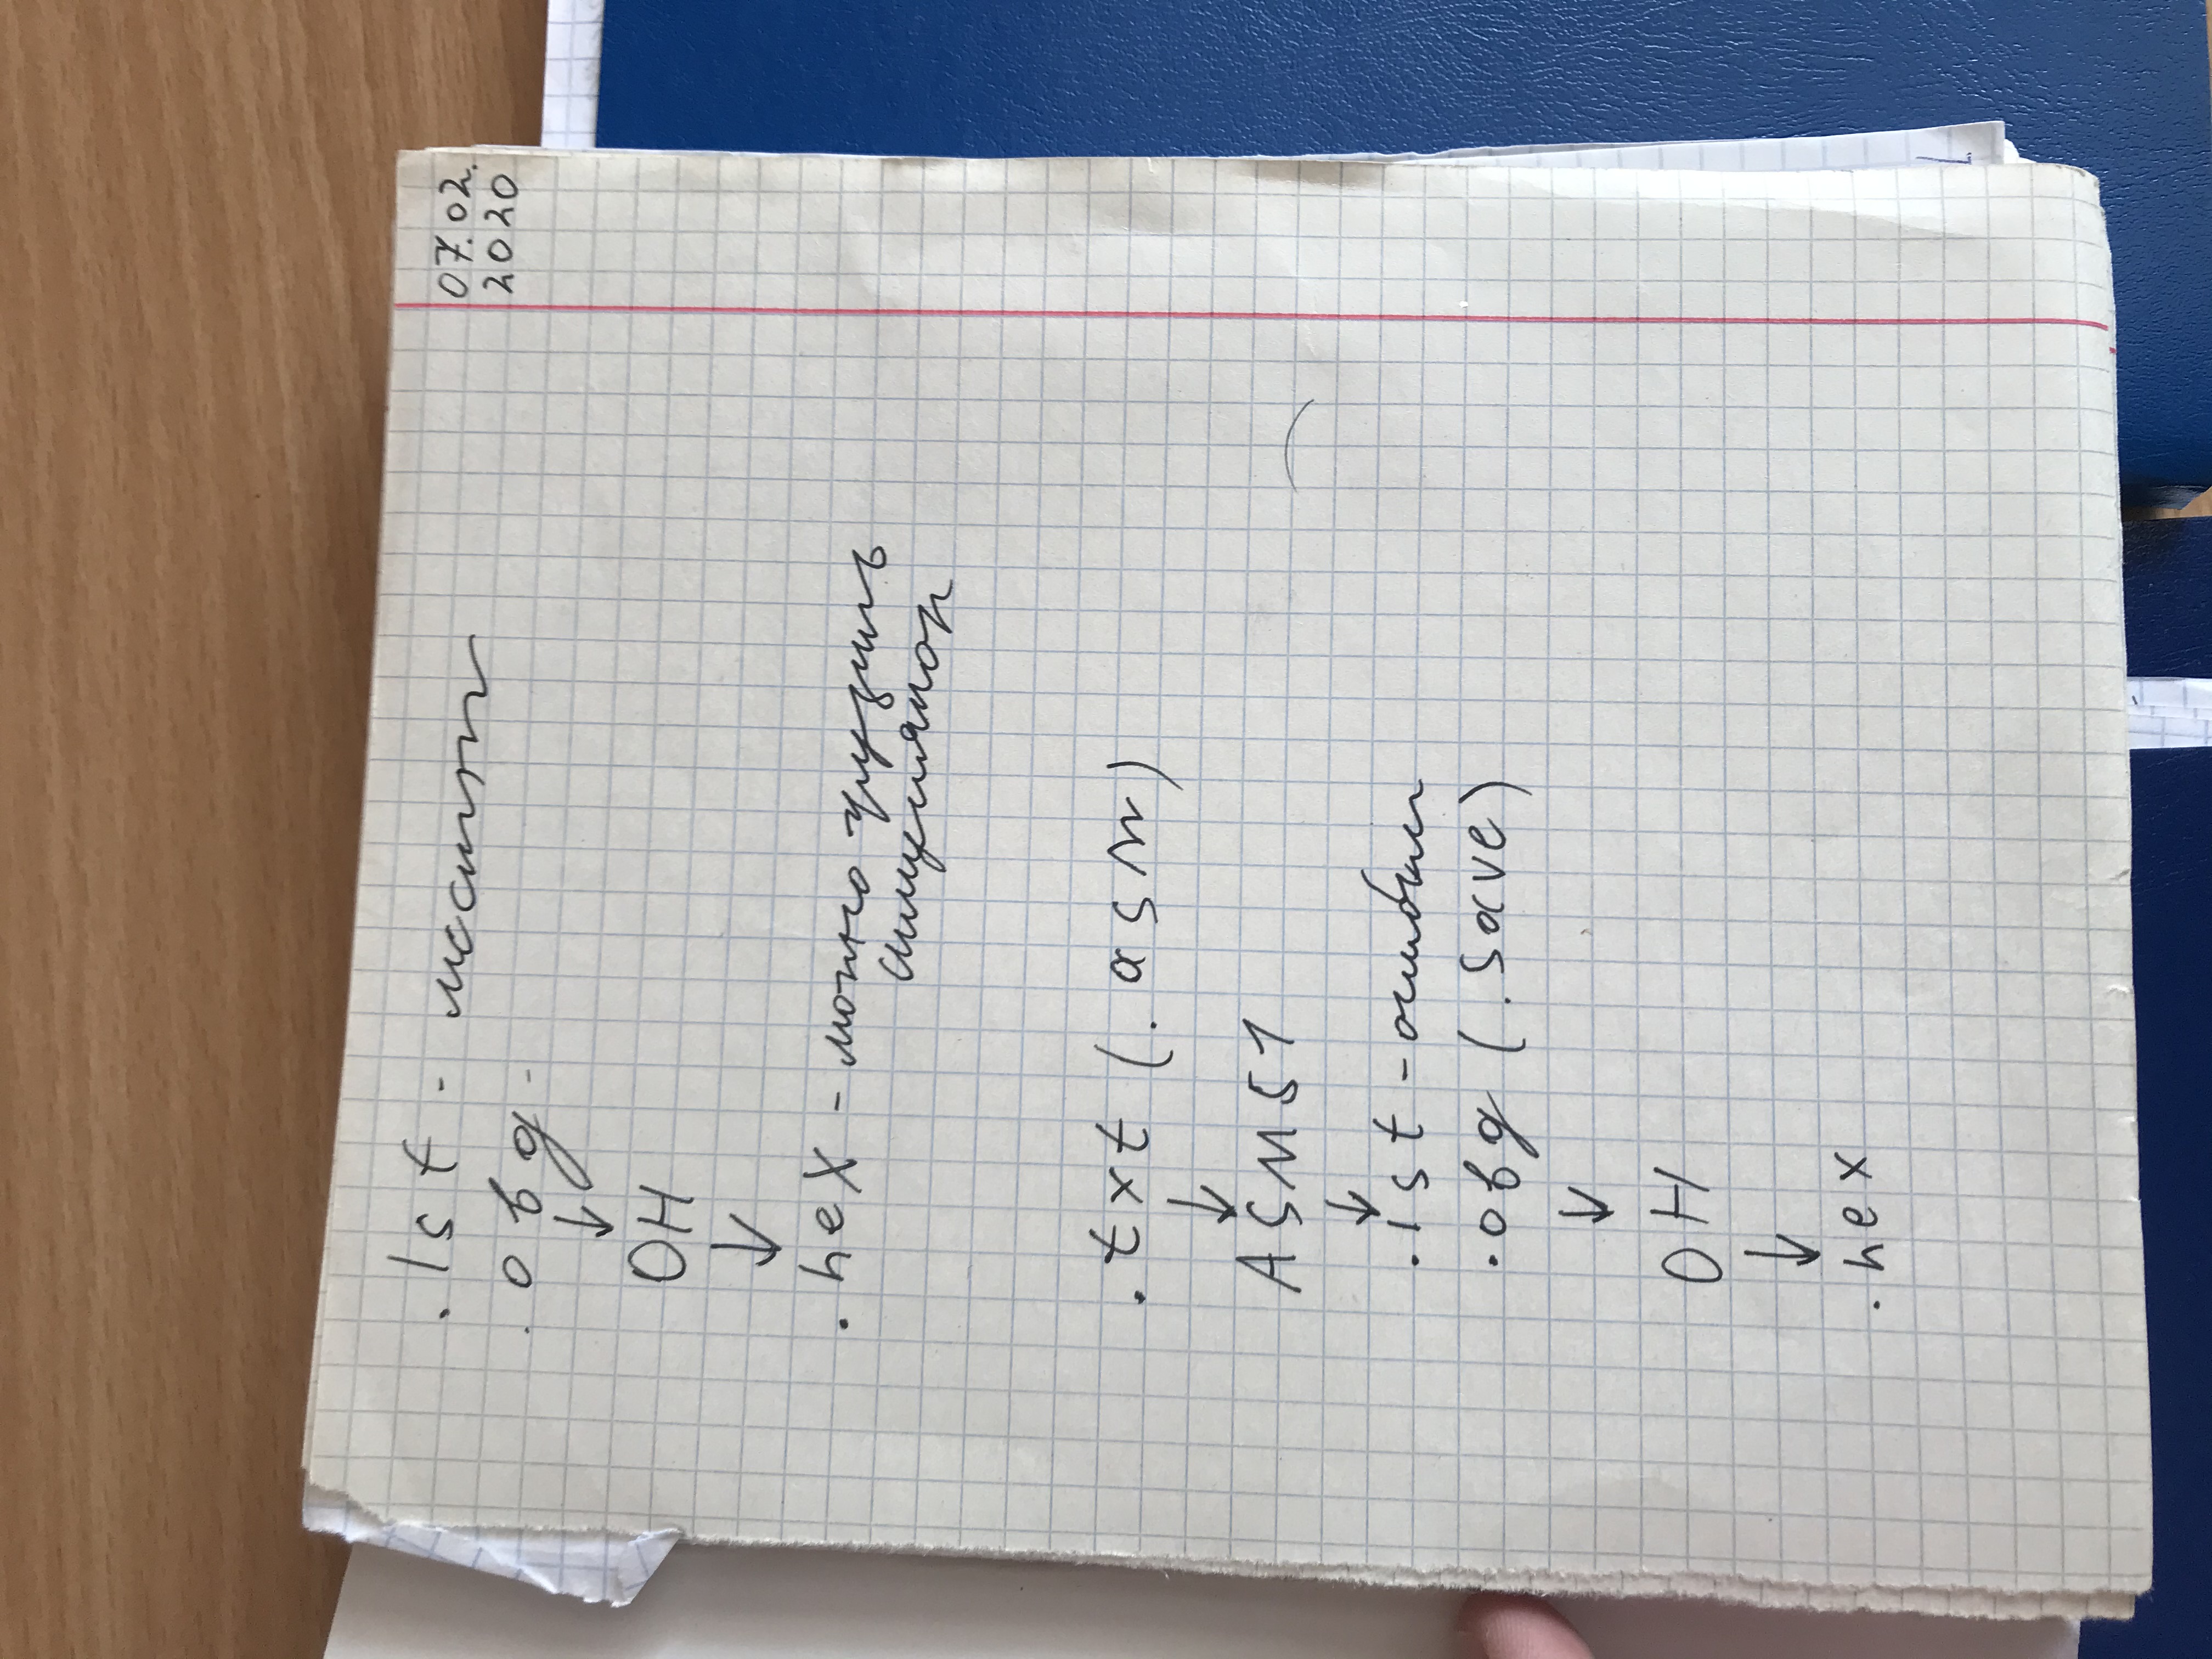 .lst -
07.02.
2020
.obg -
↓
OH
↓
.hex - можно грузить
симулятор
.txt (.asm)
↓
ASM51
↓
.lst - ошибки
.obg (.save)
↓
OH
↓
.hex